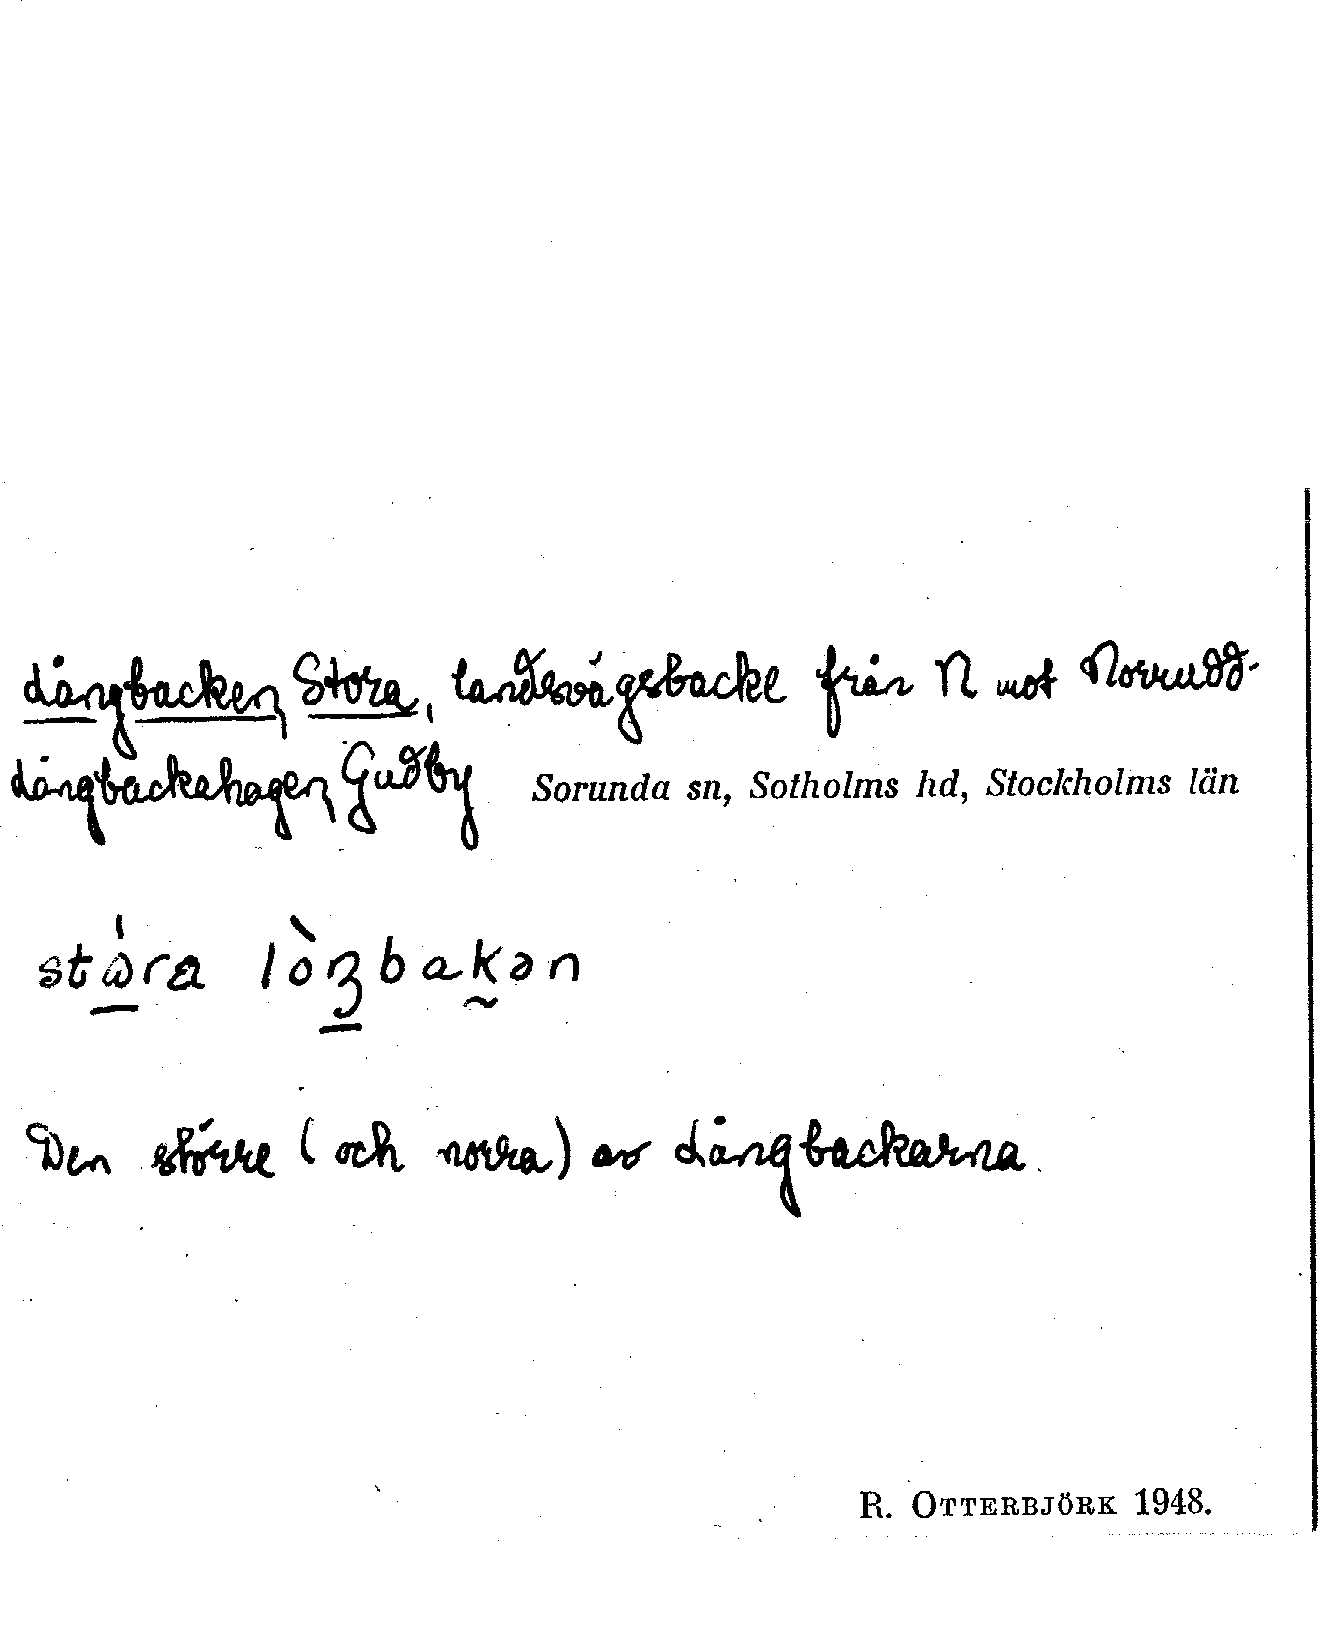 Långbacken, Stora, landsvägsbacke från N mot Norrudd-
Långbackahagen, Gudby Sorunda sn, Sotholms hd, Stockholms län
stɷ̀ra lòŋbakən
Den större (och norra) av Långbackarna.
R. OTTERBJÖRK 1948.